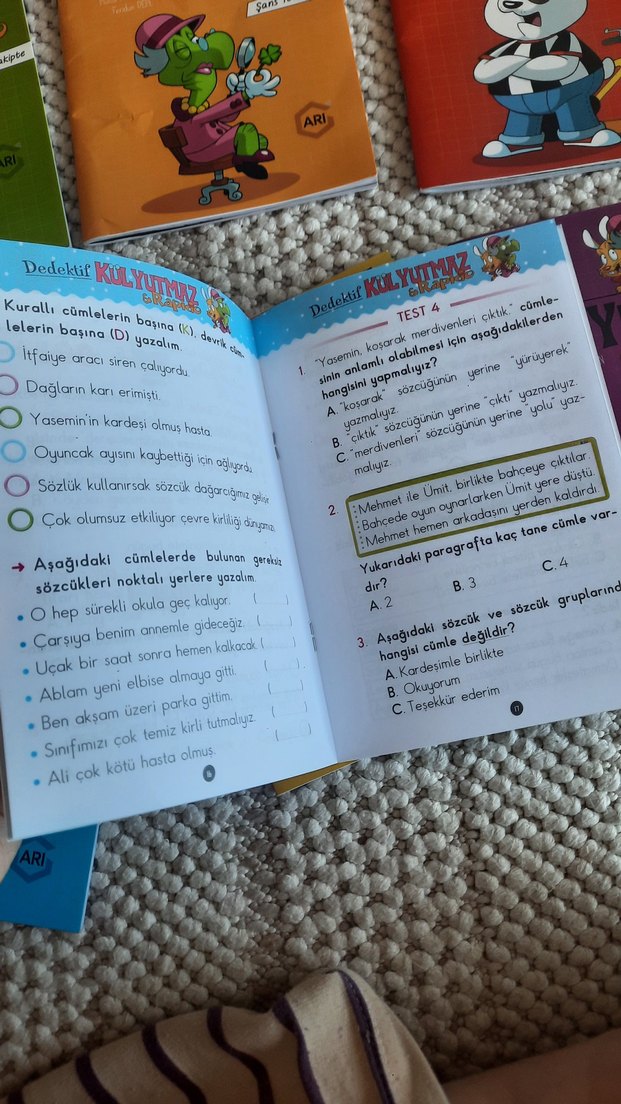 akipte
Feridun DEPE
Şans
ARI
ARI
Dedektif KÜLYUTMAZ
& Rapido
Kurallı cümlelerin başına (K), devrik cüm-
lelerin başına (D) yazalım.
İtfaiye aracı siren çalıyordu.
Dağların karı erimişti.
Yasemin'in kardeşi olmuş hasta.
Oyuncak ayısını kaybettiği için ağlıyordu.
Sözlük kullanırsak sözcük dağarcığımız gelişir.
Çok olumsuz etkiliyor çevre kirliliği dünyamızı.
→ Aşağıdaki cümlelerde bulunan gereksiz
sözcükleri noktalı yerlere yazalım.
• O hep sürekli okula geç kalıyor. (      )
• Çarşıya benim annemle gideceğiz. (      )
• Uçak bir saat sonra hemen kalkacak. (      )
• Ablam yeni elbise almaya gitti. (      ).
• Ben akşam üzeri parka gittim. (      )
• Sınıfımızı çok temiz kirli tutmalıyız. (      )
• Ali çok kötü hasta olmuş. (      )
16
Dedektif KÜLYUTMAZ
& Rapido
TEST 4
1. "Yasemin, koşarak merdivenleri çıktık." cümle-
sinin anlamlı olabilmesi için aşağıdakilerden
hangisini yapmalıyız?
A. "koşarak" sözcüğünün yerine "yürüyerek"
yazmalıyız.
B. "çıktık" sözcüğünün yerine "çıktı" yazmalıyız.
C. "merdivenleri" sözcüğünün yerine "yolu" yaz-
malıyız.
2. Mehmet ile Ümit, birlikte bahçeye çıktılar.
Bahçede oyun oynarlarken Ümit yere düştü.
Mehmet hemen arkadaşını yerden kaldırdı.
Yukarıdaki paragrafta kaç tane cümle var-
dır?
A. 2 B. 3 C. 4
3. Aşağıdaki sözcük ve sözcük gruplarında
hangisi cümle değildir?
A. Kardeşimle birlikte
B. Okuyorum
C. Teşekkür ederim
17
ARI